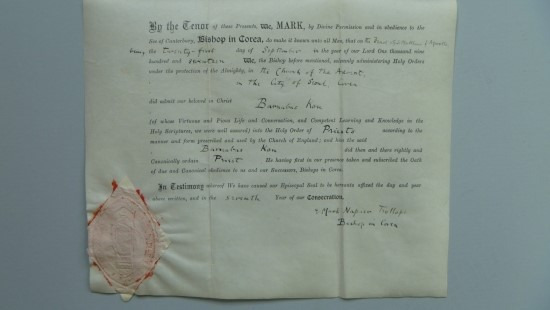 By the Tenor of these Presents, We, MARK, by Divine Permission and in obedience to the
See of Canterbury, Bishop in Corea, do make it known unto all Men, that on the Feast of St Matthew (Apostle,
being the twenty-first day of September in the year of our Lord One thousand nine
hundred and seventeen We, the Bishop before mentioned, solemnly administering Holy Orders
under the protection of the Almighty, in The Church of The Advent,
in The City of Seoul, Corea
did admit our beloved in Christ Barnabas Kou
(of whose Virtuous and Pious Life and Conversation, and Competent Learning and Knowledge in the
Holy Scriptures, we were well assured) into the Holy Order of Priests according to the
manner and form prescribed and used by the Church of England; and him the said
Barnabas Kou did then and there rightly and
Canonically ordain Priest He having first in our presence taken and subscribed the Oath
of due and Canonical obedience to us and our Successors, Bishops in Corea.
In Testimony whereof We have caused our Episcopal Seal to be hereunto affixed the day and year
above written, and in the seventh Year of our Consecration.
Mark Napier Trollope
Bishop in Corea